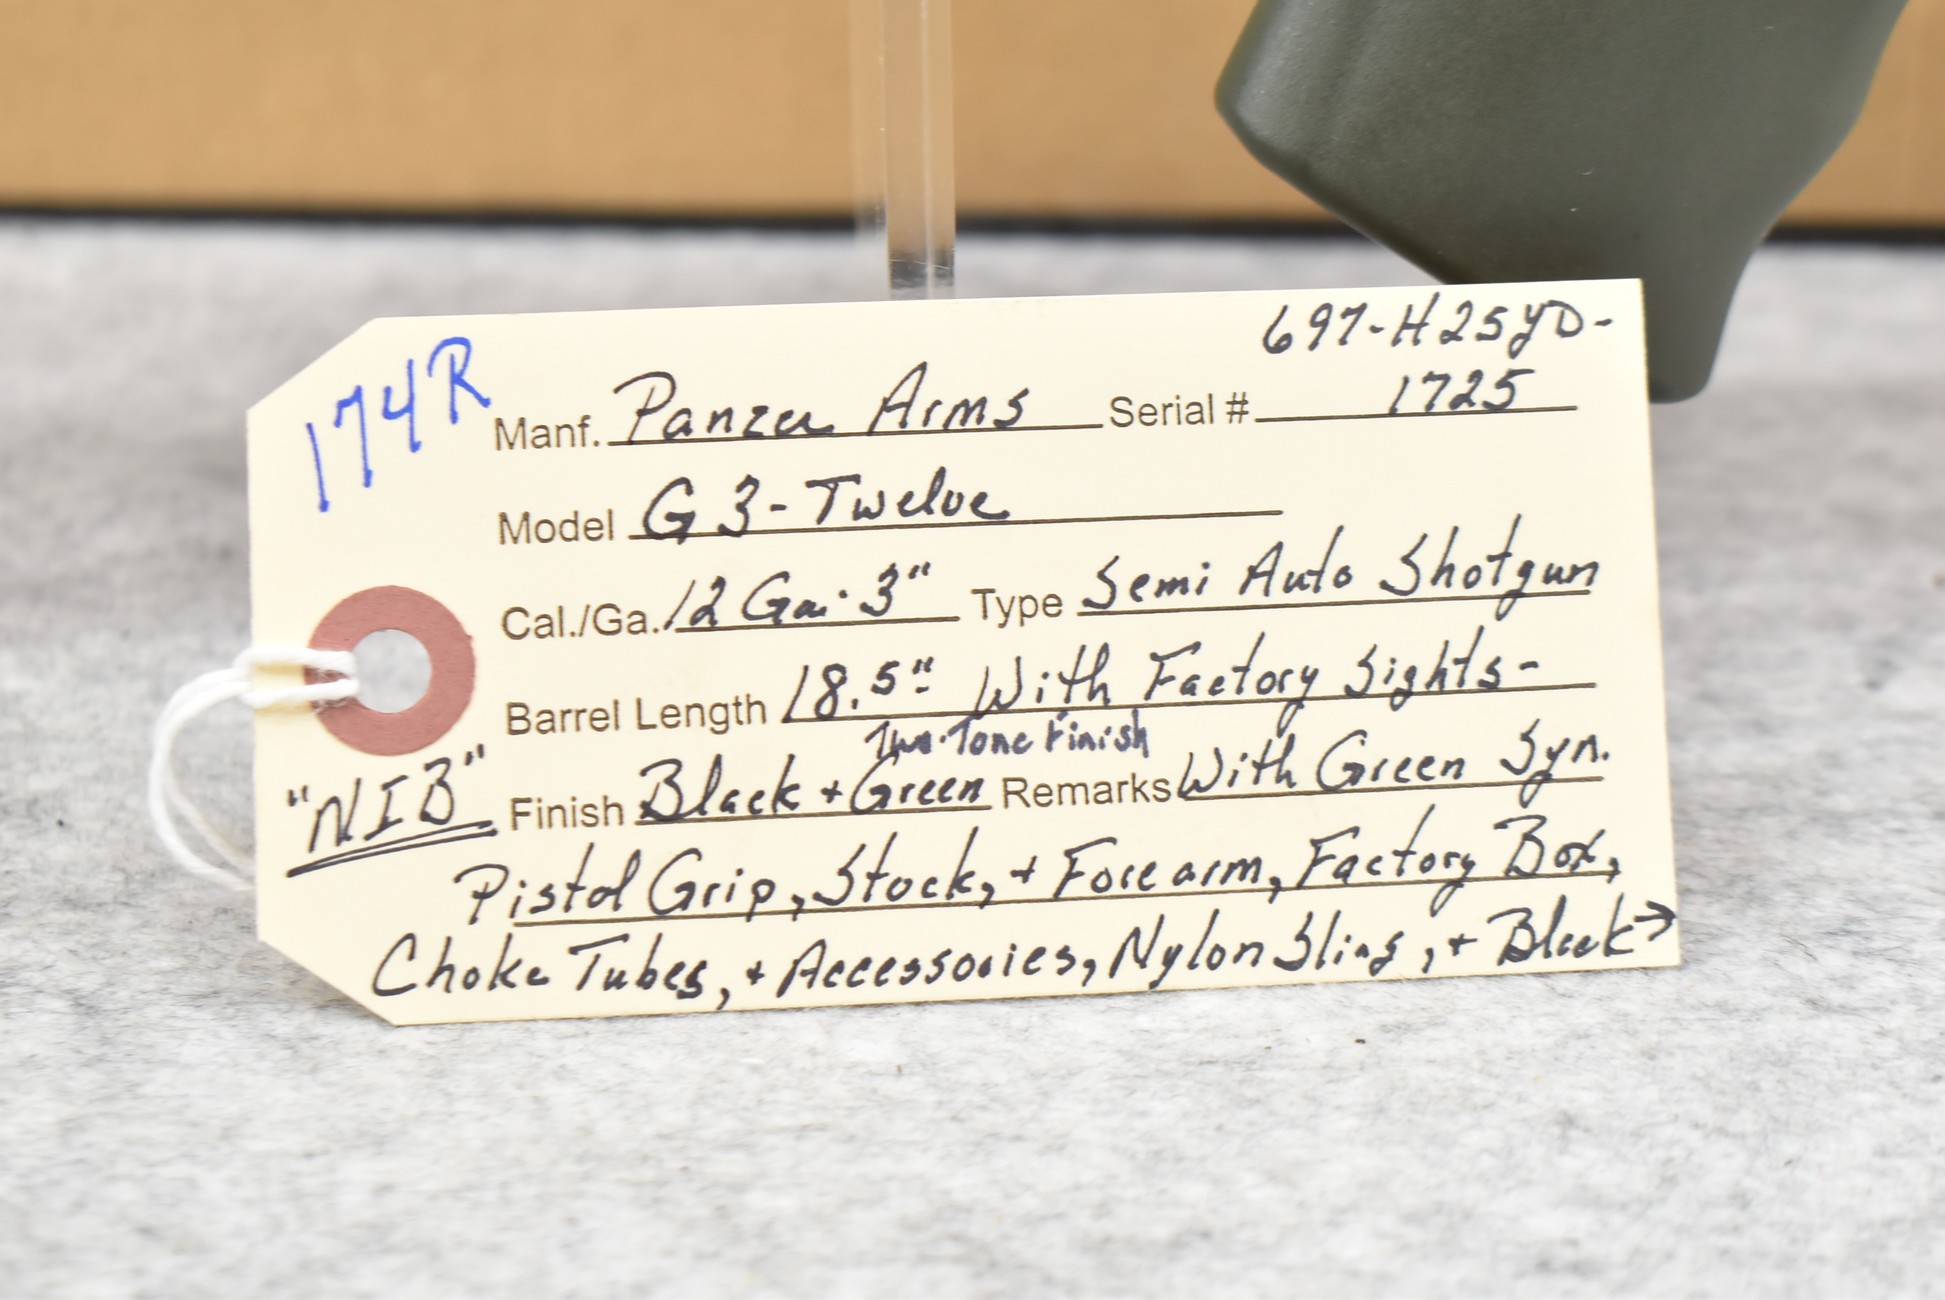 174R
697-H25YD-
Manf. Panzer Arms Serial # 1725
Model G3-Twelve
Cal./Ga. 12 Ga. 3" Type Semi Auto Shotgun
Barrel Length 18.5" With Factory Sights-
Two-Tone Finish
"NIB" Finish Black + Green Remarks With Green Syn.
Pistol Grip, Stock, + Forearm, Factory Box,
Choke Tubes, + Accessories, Nylon Sling, + Black →